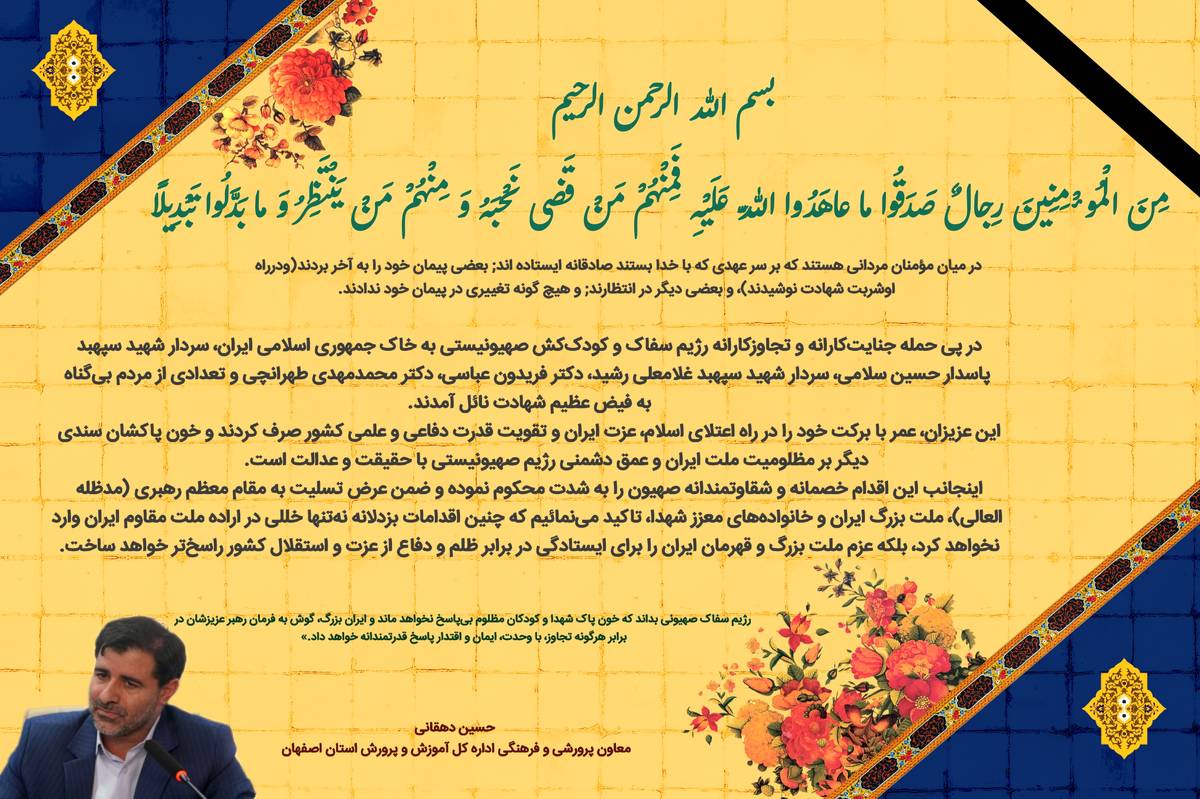 بسم الله الرحمن الرحیم
مِنَ الْمُؤْمِنِينَ رِجالٌ صَدَقُوا ما عاهَدُوا اللَّهَ عَلَيْهِ فَمِنْهُمْ مَنْ قَضى نَحْبَهُ وَ مِنْهُمْ مَنْ يَنْتَظِرُ وَ ما بَدَّلُوا تَبْدِيلًا
در میان مؤمنان مردانی هستند که بر سر عهدی که با خدا بستند صادقانه ایستاده اند; بعضی پیمان خود را به آخر بردند(ودرراه
اوشربت شهادت نوشیدند)، و بعضی دیگر در انتظارند; و هیچ گونه تغییری در پیمان خود ندادند.
در پی حمله جنایت‌کارانه و تجاوزکارانه رژیم سفاک و کودک‌کش صهیونیستی به خاک جمهوری اسلامی ایران، سردار شهید سپهبد
پاسدار حسین سلامی، سردار شهید سپهبد غلامعلی رشید، دکتر فریدون عباسی، دکتر محمدمهدی طهرانچی و تعدادی از مردم بی‌گناه
به فیض عظیم شهادت نائل آمدند.
این عزیزان، عمر با برکت خود را در راه اعتلای اسلام، عزت ایران و تقویت قدرت دفاعی و علمی کشور صرف کردند و خون پاکشان سندی
دیگر بر مظلومیت ملت ایران و عمق دشمنی رژیم صهیونیستی با حقیقت و عدالت است.
اینجانب این اقدام خصمانه و شقاوتمندانه صهیون را به شدت محکوم نموده و ضمن عرض تسلیت به مقام معظم رهبری (مدظله
العالی)، ملت بزرگ ایران و خانواده‌های معزز شهدا، تاکید می‌نمائیم که چنین اقدامات بزدلانه نه‌تنها خللی در اراده ملت مقاوم ایران وارد
نخواهد کرد، بلکه عزم ملت بزرگ و قهرمان ایران را برای ایستادگی در برابر ظلم و دفاع از عزت و استقلال کشور راسخ‌تر خواهد ساخت.
رژیم سفاک صهیونی بداند که خون پاک شهدا و کودکان مظلوم بی‌پاسخ نخواهد ماند و ایران بزرگ، گوش به فرمان رهبر عزیزشان در
برابر هرگونه تجاوز، با وحدت، ایمان و اقتدار پاسخ قدرتمندانه خواهد داد.»
حسین دهقانی
معاون پرورشی و فرهنگی اداره کل آموزش و پرورش استان اصفهان